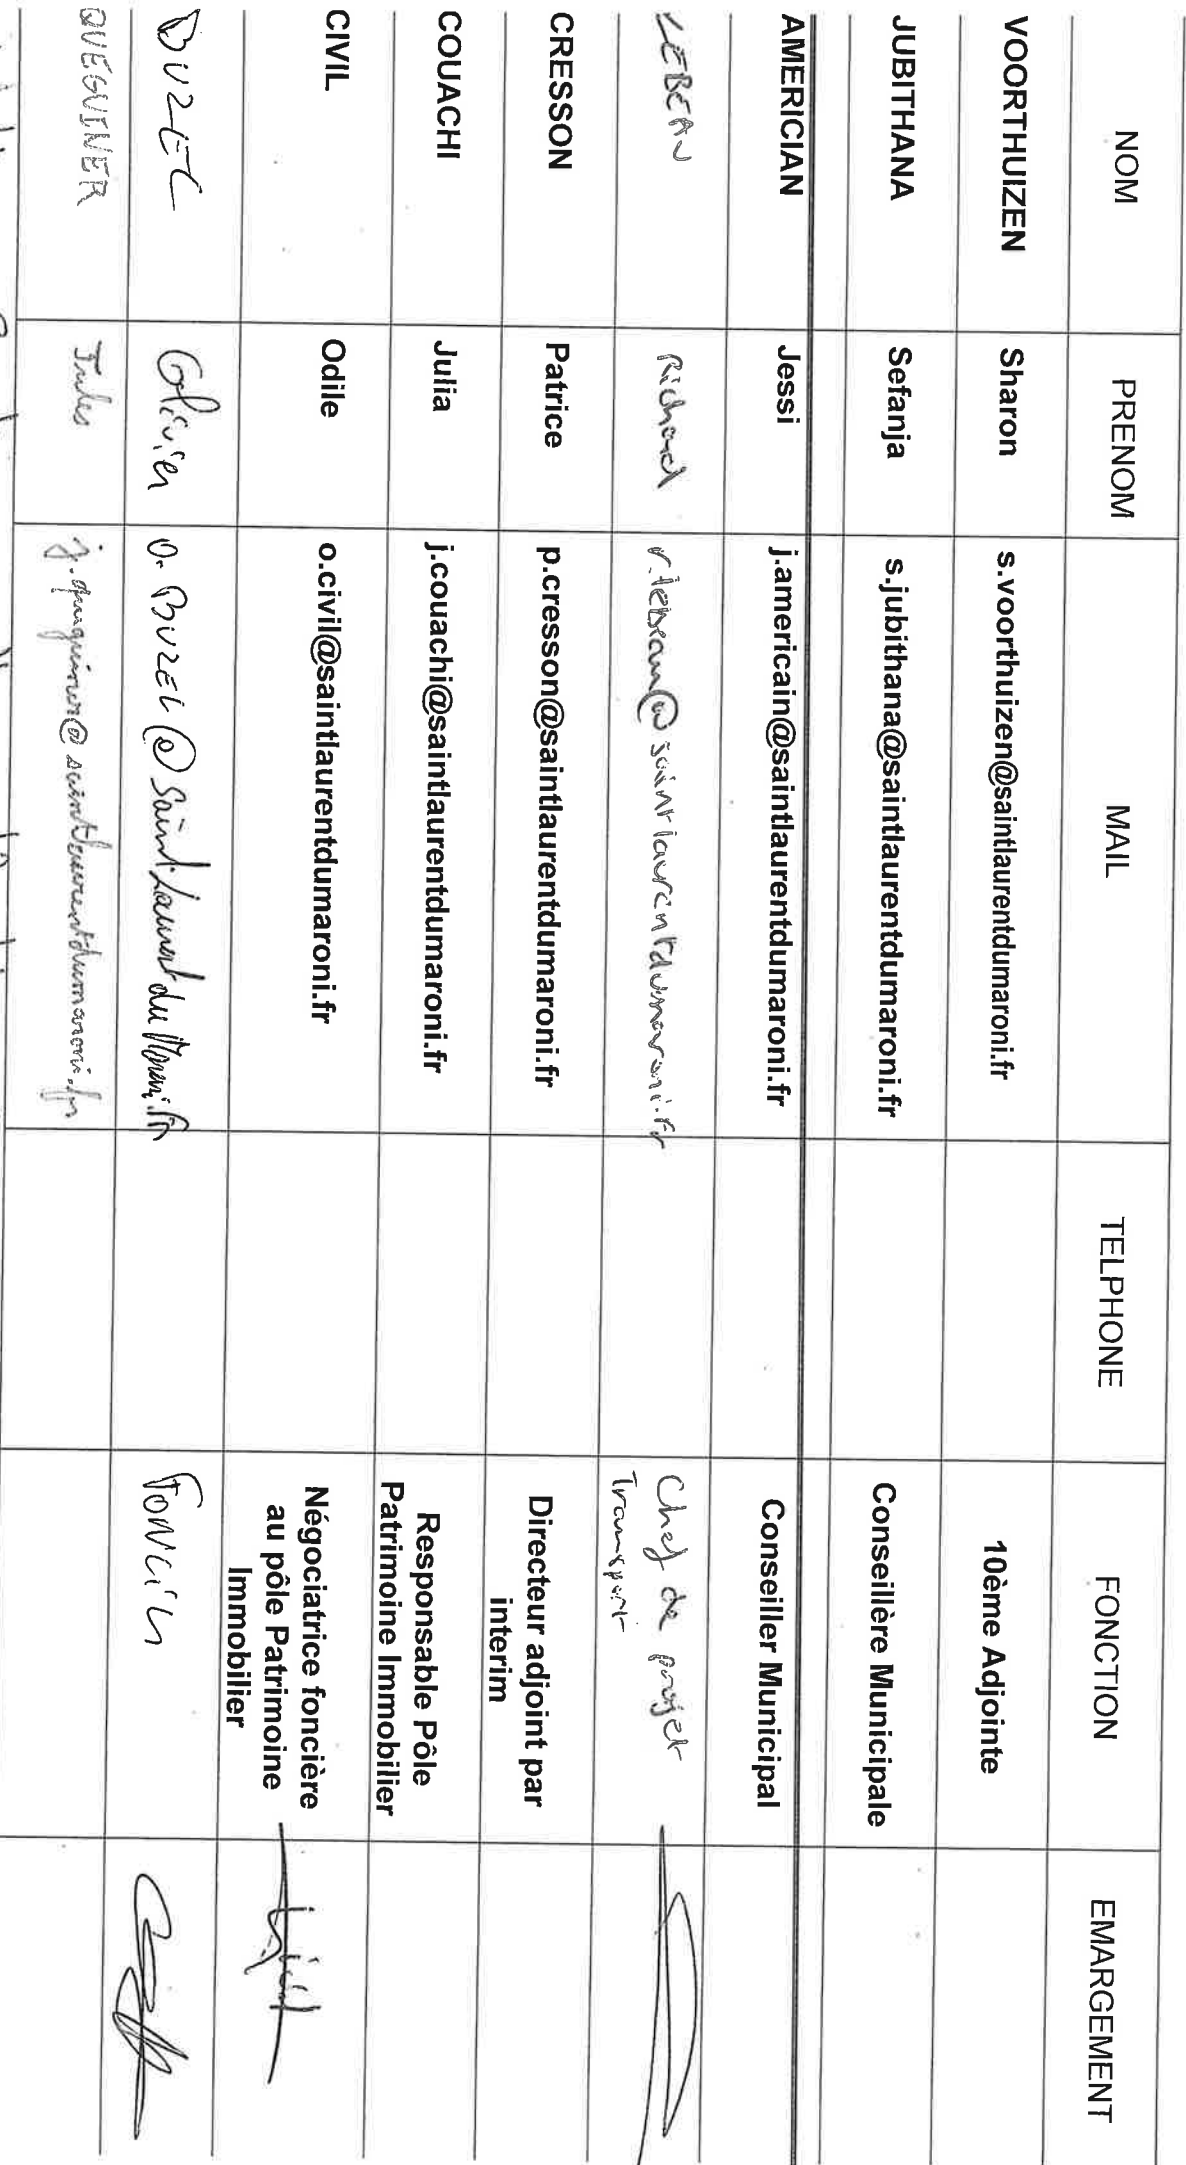 NOM PRENOM MAIL TELPHONE FONCTION EMARGEMENT
VOORTHUIZEN Sharon s.voorthuizen@saintlaurentdumaroni.fr 10ème Adjointe
JUBITHANA Sefanja s.jubithana@saintlaurentdumaroni.fr Conseillère Municipale
AMERICIAN Jessi j.americain@saintlaurentdumaroni.fr Conseiller Municipal
LEBEAU Richard r.lebeau@saintlaurentdumaroni.fr Chef de projet
Transport
CRESSON Patrice p.cresson@saintlaurentdumaroni.fr Directeur adjoint par
interim
COUACHI Julia j.couachi@saintlaurentdumaroni.fr Responsable Pôle
Patrimoine Immobilier
CIVIL Odile o.civil@saintlaurentdumaroni.fr Négociatrice foncière
au pôle Patrimoine
Immobilier
BUZEC Olivier o.BUZEC@Saint.Laurent du Maroni.fr FONCIER
QUEGUINER Jules j.queguiner@saintlaurentdumaroni.fr